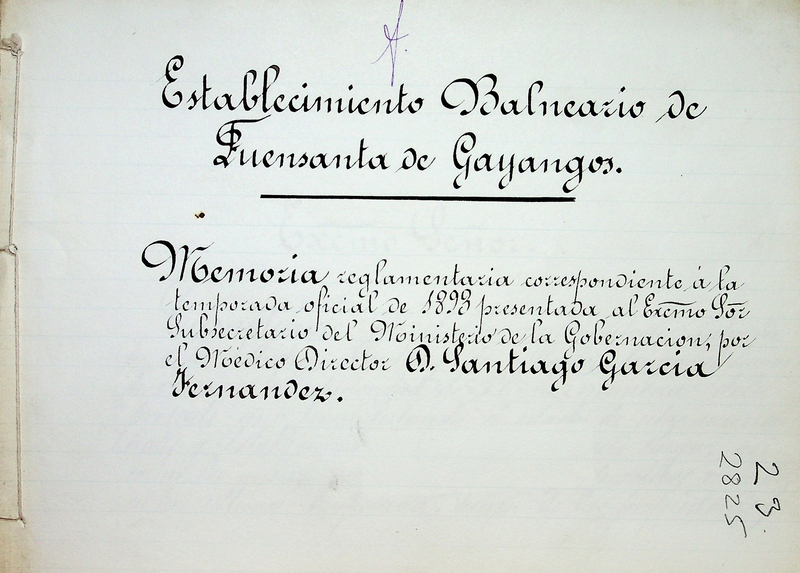 Establecimiento Balneario de
Fuensanta de Gayangos.
Memoria reglamentaria correspondiente á la
temporada oficial de 1893 presentada al Excmo Sor
Subsecretario del Ministerio de la Gobernacion, por
el Médico Director D. Santiago García
Fernandez.
23
2825